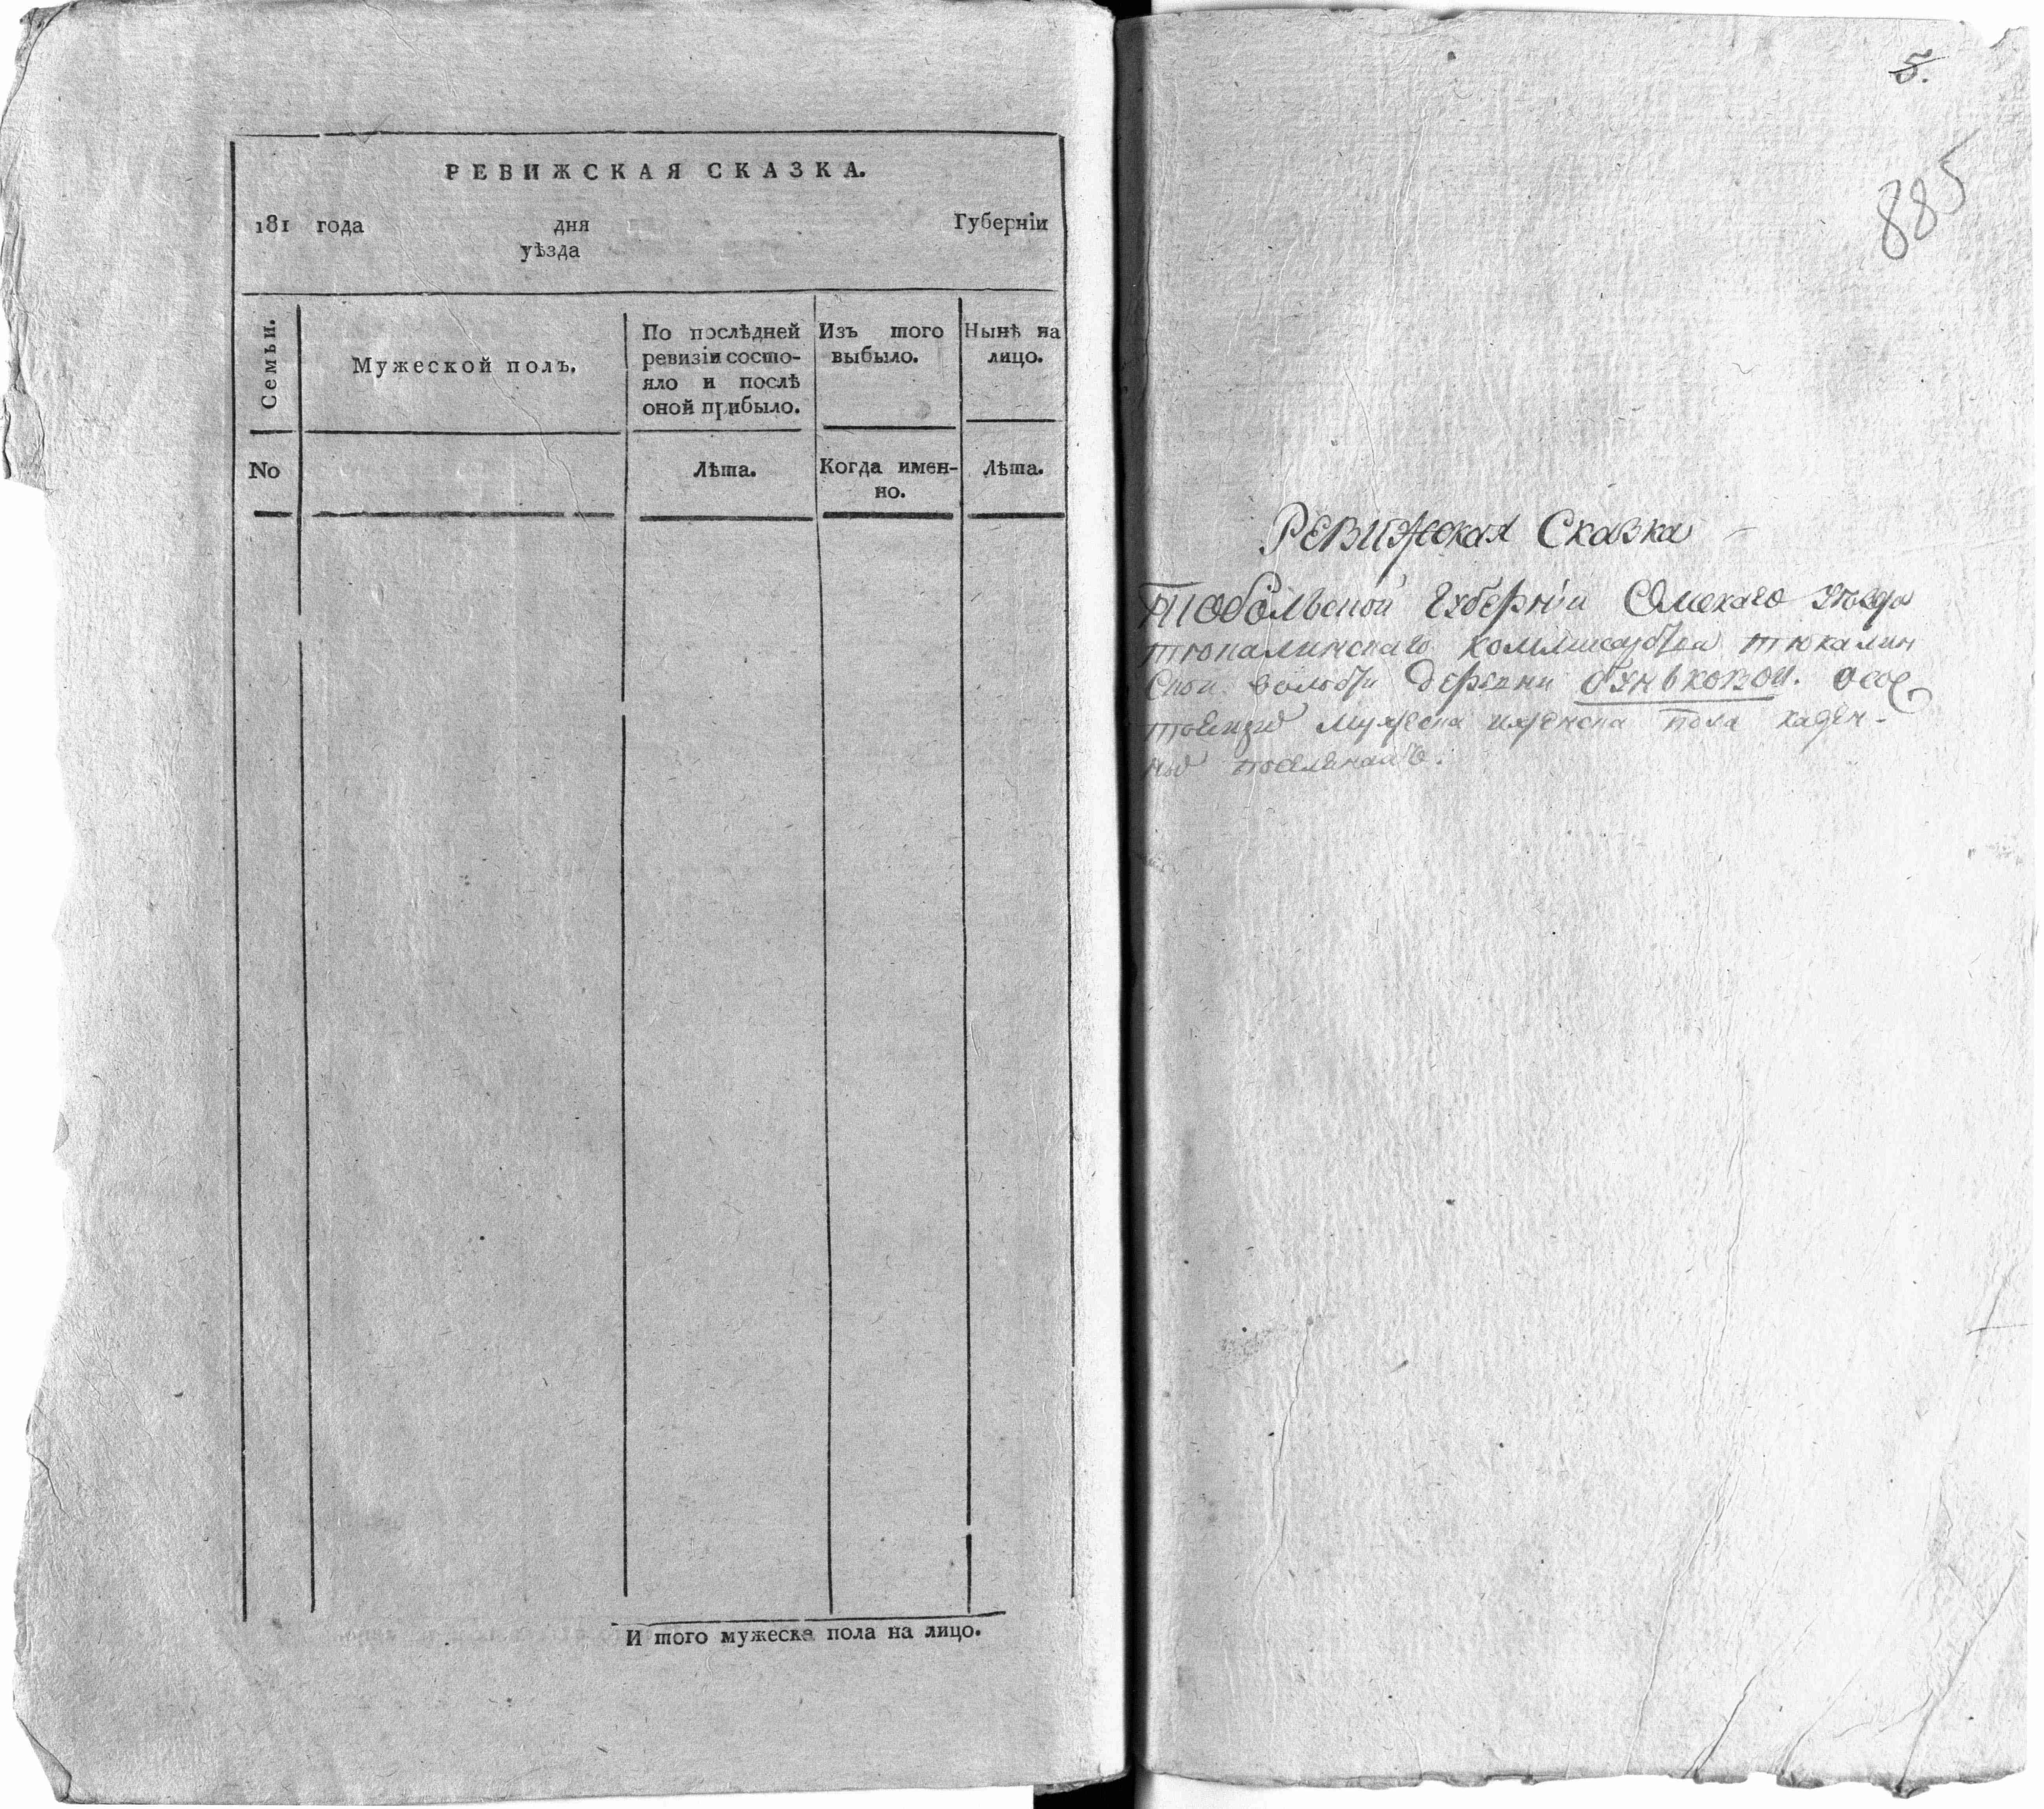 РЕВИЖСКАЯ СКАЗКА.
181 года дня Губерніи
уѣзда
Семьи.
Мужеской полъ.
По послѣдней
ревизіи состо-
яло и послѣ
оной прибыло.
Изъ того
выбыло.
Нынѣ на
лицо.
No
Лѣта.
Когда имен-
но.
Лѣта.
И того мужеска пола на лицо.
5.
885
Ревижская Сказка
Тобольской губерніи Омскаго уѣзда
тюкалинскаго коммисарства тюкалин
ской волости деревни бунѣковой. о сос
мужеска женска пола